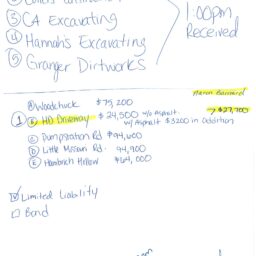 ③ CA Excavating
④ Hannahs Excavating
⑤ Granger Dirtworks
1:00pm
Received
Ⓐ Woodchuck $75,200
→ $27,700
① Ⓑ HD Driveway $24,500 w/o Asphalt.
w/ Asphalt $3200 in addition
Ⓒ Dumpstation Rd. $94,600
Ⓓ Little Missouri Rd. 44,900
Ⓔ Hollow $64,000
☑ Limited Liability
☐ Bond